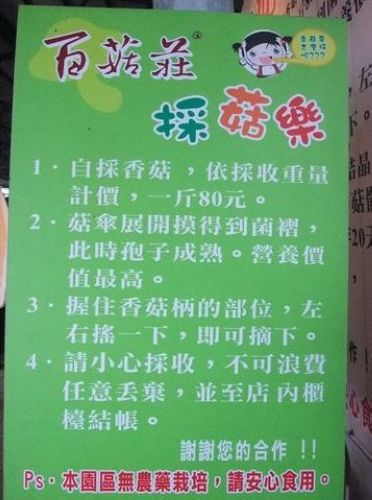 百菇莊
採菇樂
1．自採香菇，依採收重量
計價，一斤80元。
2．菇傘展開摸得到菌褶，
此時孢子成熟。營養價
值最高。
3．握住香菇柄的部位，左
右搖一下，即可摘下。
4．請小心採收，不可浪費
任意丟棄，並至店內櫃
檯結帳。
謝謝您的合作 !!
Ps．本園區無農藥栽培，請安心食用。